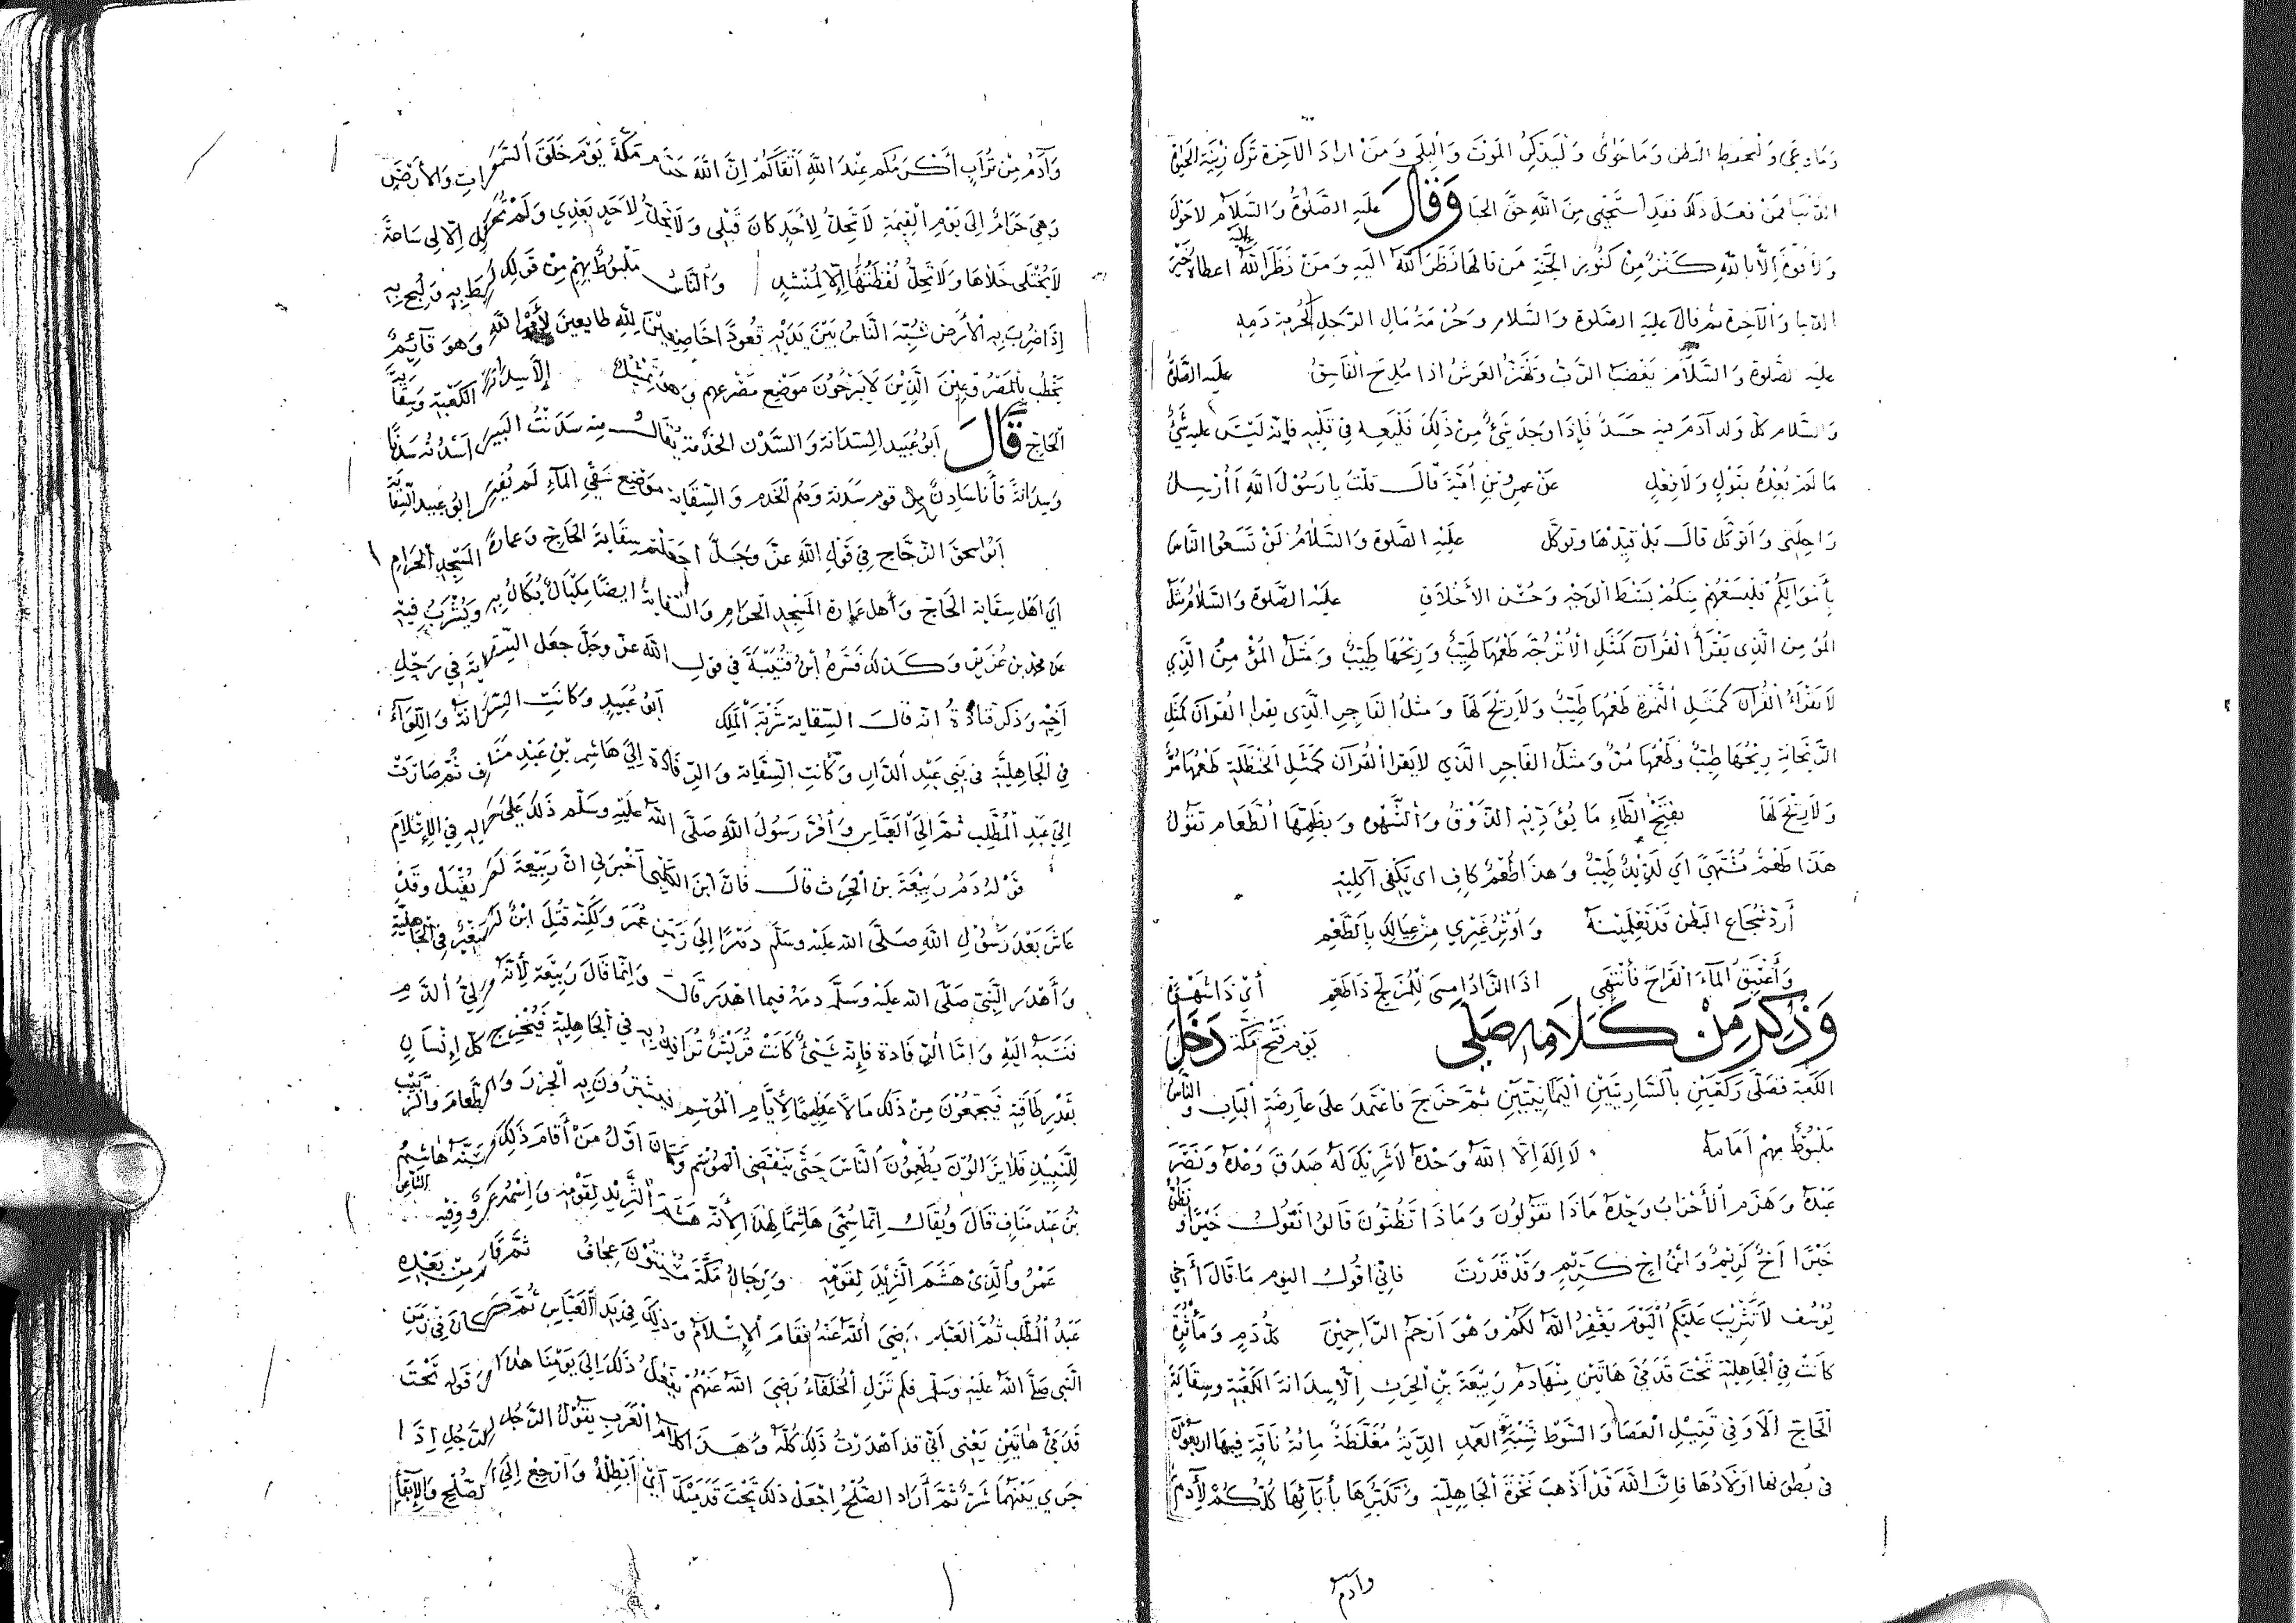 وَمَا وَعَى وَلْيَحفظِ البَطن وَمَا حَوَىٰ وَلْيَذكُرِ المَوتَ وَالْبِلَى وَمَنْ ارادَ الآخِرة تَرَكَ زِينَةَ الحَيٰوة
الدُّنْيَا فمَنْ فعَلَ ذَلكَ فقدِ اسْتَحْيَى مِنَ اللهِ حَقَّ الحيَا وَقَالَ عَليَهِ الصَّلٰوةُ وَالسَّلَامُ لاحَوْلَ
وَلَا قُوةَ إِلَّا بِاللهِ كَنْزٌ مِنْ كُنُوزِ الجَنَّةِ مَن قالَهَا نَظَرَ اللهُ اليَهِ وَمَنْ نَظَرَ اللهُ اليه اعطاهُ خَيْرَ
الدّنيا وَالآخِرة ثم قالَ عَليَهِ الصَّلوة وَالسَّلام وَحُرْمَةُ مَالِ الرَّجلِ كحُرْمَةِ دَمِهِ
عَليَهِ الصَّلوة وَالسَّلامُ يَغْضَبُ الرَّبُّ وَيَهْتَزُّ العَرشُ اذا مُدِحَ الفَاسِقُ عَليَهِ الصَّلَوٰة
وَالسَّلام كلُّ وَلَدِ آدَمَ فيهِ حَسَدٌ فَإِذَا وَجَدَ شَيْءٌ مِنْ ذَلِكَ فَلْيَدَعهِ فِي قَلْبِهِ فإِنَّهُ لَيْسَ عليهِ شَيْءٌ
مَا لمَ يُعِدْهُ بِقَوْلٍ وَلَا فِعْلٍ عَنْ عمرِو بْنِ أُمَيَّةَ قَالَ قلتُ يا رَسُوْلَ اللهِ أَأُرْسِلُ
رَاحِلَتي وَاتَوكَّل قالَ بَلْ قَيِّدْهَا وتوَكَّل عَليَهِ الصَّلوة وَالسَّلَامُ لَنْ تَسَعُوا النَّاسَ
بِأَمْوَالِكُم فلْيَسَعْهُمْ مِنكُمْ بَسْط الْوَجْهِ وَحُسْن الأَخْلَاقِ عَليَهِ الصَّلوة وَالسَّلَامُ مَثَلُ
المُؤمِن الَّذِى يَقْرَأُ القُرآنَ كَمَثَلِ الأُتْرُجَّةِ طَعْمُهَا طَيِّبٌ وَرِيْحُهَا طَيِّبٌ وَمَثَلُ المُؤْمِنِ الَّذِي
لَا يَقْرَأُ القُرْآنَ كَمَثَلِ التَّمْرةِ طَعْمُهَا طَيِّبٌ وَلَا رِيْحَ لَهَا وَمَثَلُ الفَاجِرِ الَّذِى يقرا القُرآنَ كمَثَلِ
الرَّيْحَانَةِ رِيْحُهَا طيِّبٌ وَطَعْمُهَا مُرٌّ وَمَثَلُ الفَاجِرِ الَّذَي لا يَقرَا القُرآنَ كَمَثَلِ الحَنْظَلَةِ طَعْمُهَا مُرٌّ
وَلَا رِيْحَ لَهَا بِفَتْحِ الطَّاءِ مَا يُؤَدِّيْهِ الذَّوْقُ وَالشَّهْوَه وَبِضَمِّهَا الطَّعَام تَقُولُ
هَذَا طَعْمٌ مُشْتَهًى اَي لَذِيْذٌ طَيِّبٌ وَهَذَا طُعْمٌ كافٍ اى يَكْفِى آكِلِيْهِ
أَرُدُّ شُجَاعَ البَطْنِ قَدْ تَعْلَمِيْنَهُ وَأُوْثِرُ غَيْرِي مِنْ عِيَالِكِ بِالطُّعْمِ
وَأَغْتَبِقُ المَآءَ القَرَاحَ فأنْتَهَى اذَا الزَّادُ امسَى لِلْمُزَلَّجِ ذَا طَعْمِ أَيْ ذَا شَهْوَةٍ
وَذُكِرَ مِنْ كَلَامِهِ صَلَّى يَوْمَ فَتْحِ مَكَّةَ دَخَلَ
الكَعبَةَ فَصَلَّى رَكْعَتَيْنِ بَيْنَ السَّارِيَتَيْنِ اليَمَانِيَّتَيْنِ ثُمَّ خَرَجَ فَاعْتَمَدَ عَلَى عَارِضَةِ الْبَابِ وَالنَّاسُ
مَلْبُوْطٌ بِهِمْ أَمَامَهُ لَا إِلَهَ إِلَّا اللهُ وَحْدَهُ لَا شَرِيْكَ لَهُ صَدَقَ وَعْدَهُ وَنَصَرَ
عَبْدَهُ وَهَزَمَ الأَحْزَابَ وَحْدَهُ مَاذَا تَقُوْلُونَ وَمَاذَا تَظُنُّونَ قَالوُا نَقُولُ خَيْرًا وَنَظُنُّ
خَيْرًا اَخٌ كَرِيْمٌ وَابْنُ اخٍ كَرِيْمٍ وَقَدْ قَدَرْتَ فَانِّي اقُولُ اليَوم مَا قَالَ أَخِي
يُوْسُف لَا تَثْرِيْبَ عَلَيْكُمُ اليَوْمَ يَغْفِرُ اللهُ لَكُمْ وَهْوَ اَرْحَمُ الرَّاحِمِيْنَ كُلُّ دَمٍ وَمَأْثُرَةٍ
كَانَتْ فِي الجَاهِلِيَّةِ تَحْتَ قَدَمَيَّ هَاتَيْنِ مِنْهَا دَمُ رَبِيْعَةَ بْنِ الحَرِثِ اِلَّا سِدَانَةَ الكَعْبَةِ وَسِقَايَةَ
الحَاجِّ اَلَا وَفِي قَتِيْلِ العَصَا وَالسَّوْطِ شِبْهِ العَمْدِ الدِّيَةُ مُغَلَّظَةٌ مِائةُ نَاقَةٍ فِيهَا اربَعُوْنَ
فِى بُطُونها اَوْلَادُهَا فَاِنَّ اللهَ قَدْ اَذْهَبَ نَخْوَةَ الجَاهِلِيَّةِ وَتَكَبُّرَهَا بِأٰبَآئِهَا كُلُّكُمْ لِآدَمَ
وآدم
وَآدَمُ مِنْ تُرَابٍ أَكْرَمُكم عِنْدَ اللهِ أَتْقَاكُمْ اِنَّ اللهَ حَرَّمَ مَكَّةَ يَوْمَ خَلَقَ السَّمَوَاتِ وَالأَرْضَ
وَهِيَ حَرَامٌ اِلَى يَوْمِ الْقِيٰمَةِ لَا تَحِلُّ لِأَحَدٍ كانَ قَبْلِى وَلَا تَحِلُّ لِاَحَدٍ بَعْدِي وَلَمْ تَحِلَّ لِي اِلَّا لى سَاعَةً
لَا يُخْتَلَى خَلَاهَا وَلَا تَحِلُّ لُقْطَتُهَا إِلَّا لِمُنْشِدٍ وَالنَّاسُ مَلْبُوْطٌ بِهِمْ مِنْ قَولِكَ لُبِطَ بِهِ وَلُبِجَ بِهِ
إِذَا ضُرِبَ بِهِ الْأَرْضُ شُبِّهَ النَّاسُ بَيْنَ يَدَيْهِ قُعُودًا خَاضِعِيْنَ لِلّٰهِ طايِعِينَ لِأَمْرِ اللهِ وَهوَ قَآئِمٌ
يَخْطُبُ بِالمَصْرُوعِيْنَ الَّذِيْنَ لَا يَبْرَحُونَ مَوْضِعَ مَصْرَعِهِمْ وَهٰذَا تَمْثِيْلٌ اِلَّا سِدَانَةَ الكَعْبَةِ وَسِقَايَةَ
الحَاجِّ قَالَ ابَوُ عُبَيد السِّدَانَة وَالسَّدْن الخدْمَة يُقَالُ مِنه سَدَنْتُ البَيتَ اَسْدُنُه سَدْنًا
وَسِدَانَةً فَأَنَا سَادِنٌ مِنْ قَوم سَدَنَة وَهُم الخَدَم وَالسِّقَايَة مَوْضِع سَقْيِ المَآءِ لَم يُفَسِّر ابُو عُبَيد السِّقَايَةَ
اَبُو اسحَقَ الزَّجَّاج فِي قَوْلِ اللهِ عَزَّ وَجَلَّ اَجَعَلْتُمْ سِقَايَةَ الحَاجِّ وَعمَارَةَ المَسْجِدِ الحَرَامِ
اَي اَهْل سِقَايَة الحَاجِّ وَأَهل عِمَارَة المَسْجِدِ الحَرَامِ وَالسِّقَايَةُ ايضًا مِكْيَالٌ يُكَالُ بِهِ وَيُشْرَبُ فِيْهِ
عن محمد بن عُزَيْز وَكَذَلكَ فَسَّرَهُ ابْنُ قُتَيْبَةَ في قَولِ اللهِ عَزَّ وَجَلَّ جَعَلَ السِّقَايَةَ فِي رَحْلِ
اَخِيْهِ وَذَكَرَ قتادَةُ انّهُ قَالَ السِّقَايَة شَرْبَةَ المَلِكِ اَبُو عُبَيدٍ وَكَانَتِ السِّدَانَةُ وَاللِّوَآءُ
فِي الجَاهِلِيَّةِ فِى بَنِي عَبْدِ الدَّارِ وَكَانَتِ السِّقَايَة وَالرِّفَادَة اِلَى هَاشِمِ بْنِ عَبْدِ مَنَاف ثُمَّ صَارَتْ
اِلَى عَبدِ المُطَّلِب ثُمَّ اِلَى العَبَّاسِ وَأَقَرَّ رَسُولُ اللهِ صَلَّى اللهُ عَلَيْهِ وَسَلَّم ذَلكَ عَلَى حَالِهِ فِي الإِسْلَامِ
قَوْلهُ دَمُ رَبِيْعَةَ بن الحَرِث قَالَ فَانَّ ابنَ الكَلْبِى أَخْبَرَنِى انَّ رَبِيْعَةَ لَمْ يُقْتَلْ وَقَدْ
عَاشَ بَعْدَ رَسُوْلِ اللهِ صَلَّى الله عَلَيْهِ وَسَلَّم دَهْرًا اِلَى زَمَنِ عُمَرَ وَلَكِنَّهُ قُتِلَ ابْنٌ لَهُ صَغِيْرٌ فِي الجَاهِلِيَّةِ
وَأَهْدَرَ النَّبِىّ صَلَّى الله عَلَيْهِ وَسَلَّمَ دمَهُ فيما اهْدَرَ قَالَ وَاِنَّمَا قَالَ رَبِيْعَة لِأَنَّهُ وَلِيُّ الدَّمِ
فَنَسَبَهُ اِلَيْهِ وَامَّا الرِّفَادَة فَإِنَّهُ شَيْءٌ كَانَتْ قُرَيْشٌ تُرَافِدُ بِهِ فِي الجَاهِلِيَّةِ فَيُخْرِجُ كُلُّ إِنْسَانٍ
بِقَدْرِ طَاقَتِهِ فَيَجْمَعُوْنَ مِنْ ذَلكَ مَالًا عَظِيمًا لِأَيَّامِ المَوْسِمِ فَيَشْتَرُونَ بِهِ الجُزُرَ وَالطَّعَامَ وَالزَّبِيْبَ
لِلنَّبِيْذِ فَلَا يَزَالُوْنَ يُطْعِمُوْنَ النَّاسَ حَتَّى يَنْقَضِيَ المَوْسِم وَكَانَ اَوَّلُ مَنْ أَقَامَ ذَلِكَ وَسَنَّهُ هَاشِمُ
بْنُ عَبْدِ مَنَافٍ قَالَ وَيُقَالُ اِنَّمَا سُمِّيَ هَاشِمًا لِهٰذَا لِأَنَّهُ هَشَمَ الثَّرِيْدَ لِقَوْمِهِ وَاِسْمُهُ عَمْرٌو وَفِيْهِ الشَّاعِرُ
عَمْرُو الَّذِىْ هَشَمَ الثَّرِيْدَ لِقَوْمِهِ وَرِجَالُ مَكَّةَ مُسْنِتُوْنَ عِجَافُ ثُمَّ قَامَ مِنْ بَعْدِهِ
عَبْدُ المُطَّلِب ثُمَّ العَبَّاس رَضِيَ اللهُ عَنْهُ فَقَامَ الإِسْلَامُ وَذَلِكَ فِي يَدِ العَبَّاسِ ثُمَّ كَانَ فِي زَمَنِ
النَّبى صَلَّى اللهُ عَلَيْهِ وَسَلَّمَ فلَم تَزَلِ الخُلَفَاءُ رَضِيَ اللهُ عَنْهُمْ تَفْعَلُ ذَلِكَ اِلَى يَوْمِنَا هٰذَا وَقَوله تَحْتَ
قَدَمَيَّ هَاتَيْنِ يَعْنِى اَنِّي قَدْ اَهْدَرْتُ ذَلِكَ كُلَّهُ وَهَذَا كَلَامُ العَرَبِ يَقُوْلُ الرَّجُلُ لِلرَّجُلِ اِذَا
جَرى بَيْنَهُمَا شَرٌّ ثُمَّ أَرَادَ الصُّلْحَ اِجْعَلْ ذَلكَ تَحْتَ قَدَمَيْكَ اَيْ أَبْطِلْهُ وَارْجِعْ اِلَى الصُّلْحِ